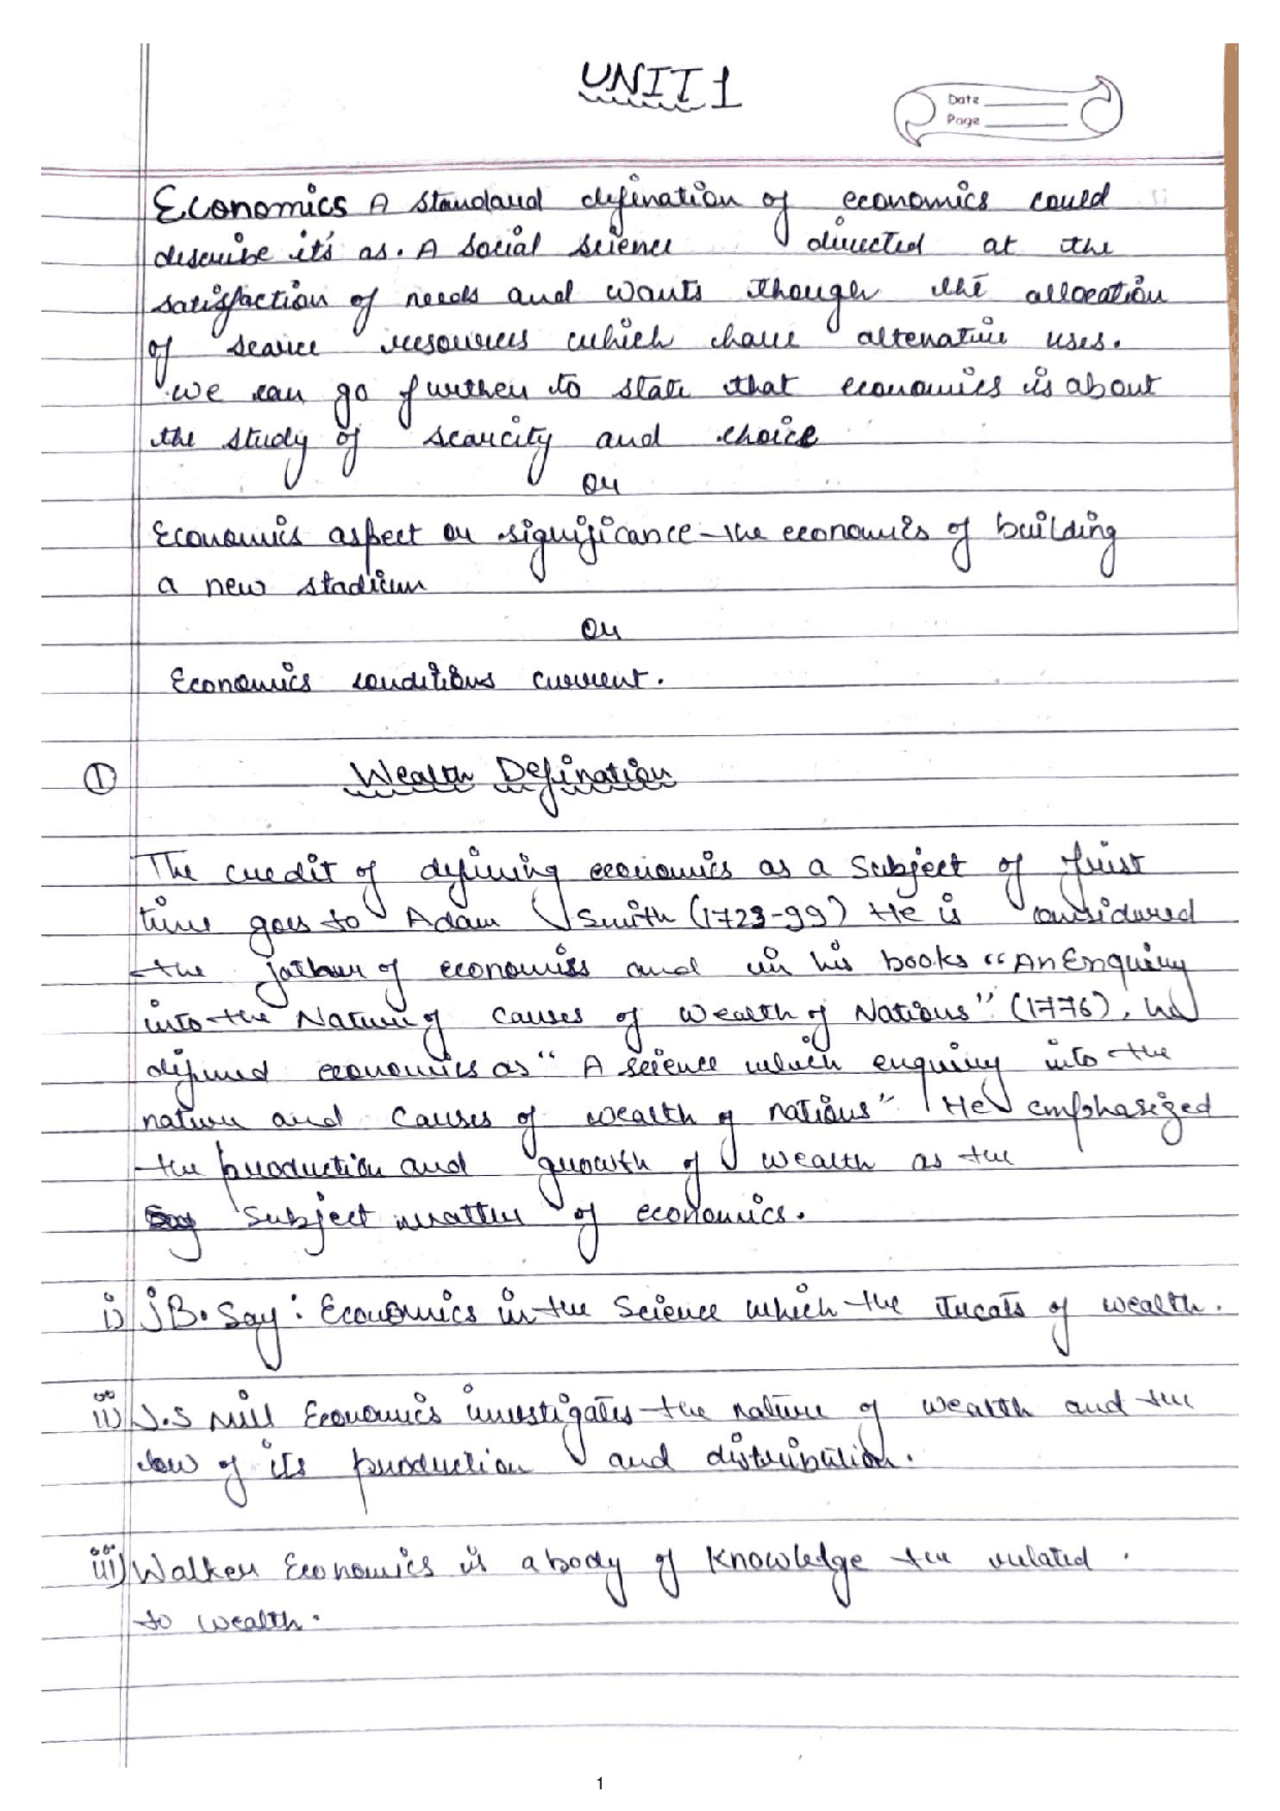 UNIT 1
Date
Page
Economics A standard defination of economics could
describe it's as. A social science directed at the
satisfaction of needs and wants though the allocation
of scarice resources which have altenative uses.
we can go further to state that economics is about
the study of scarcity and choice
Or
Economics aspect or significance - the economics of building
a new stadium
Or
Economics conditions current.
① Wealth Defination
The credit of defining economics as a Subject of frist
time goes to Adam Smith (1723-99) He is considured
the father of economics and in his books "An Enquiry
into the Nature of causes of wealth of Nations" (1776), he
defined economics as "A science which enquiry into the
nature and causes of wealth of nations" He emphasized
the production and growth of wealth as the
subject matter of economics.
i) J B. Say: Economics in the Science which the treats of wealth.
ii) J.S Mill Economics investigates the nature of wealth and the
law of its production and distribution.
iii) Walker Economics is a body of Knowledge the related
to wealth.
1